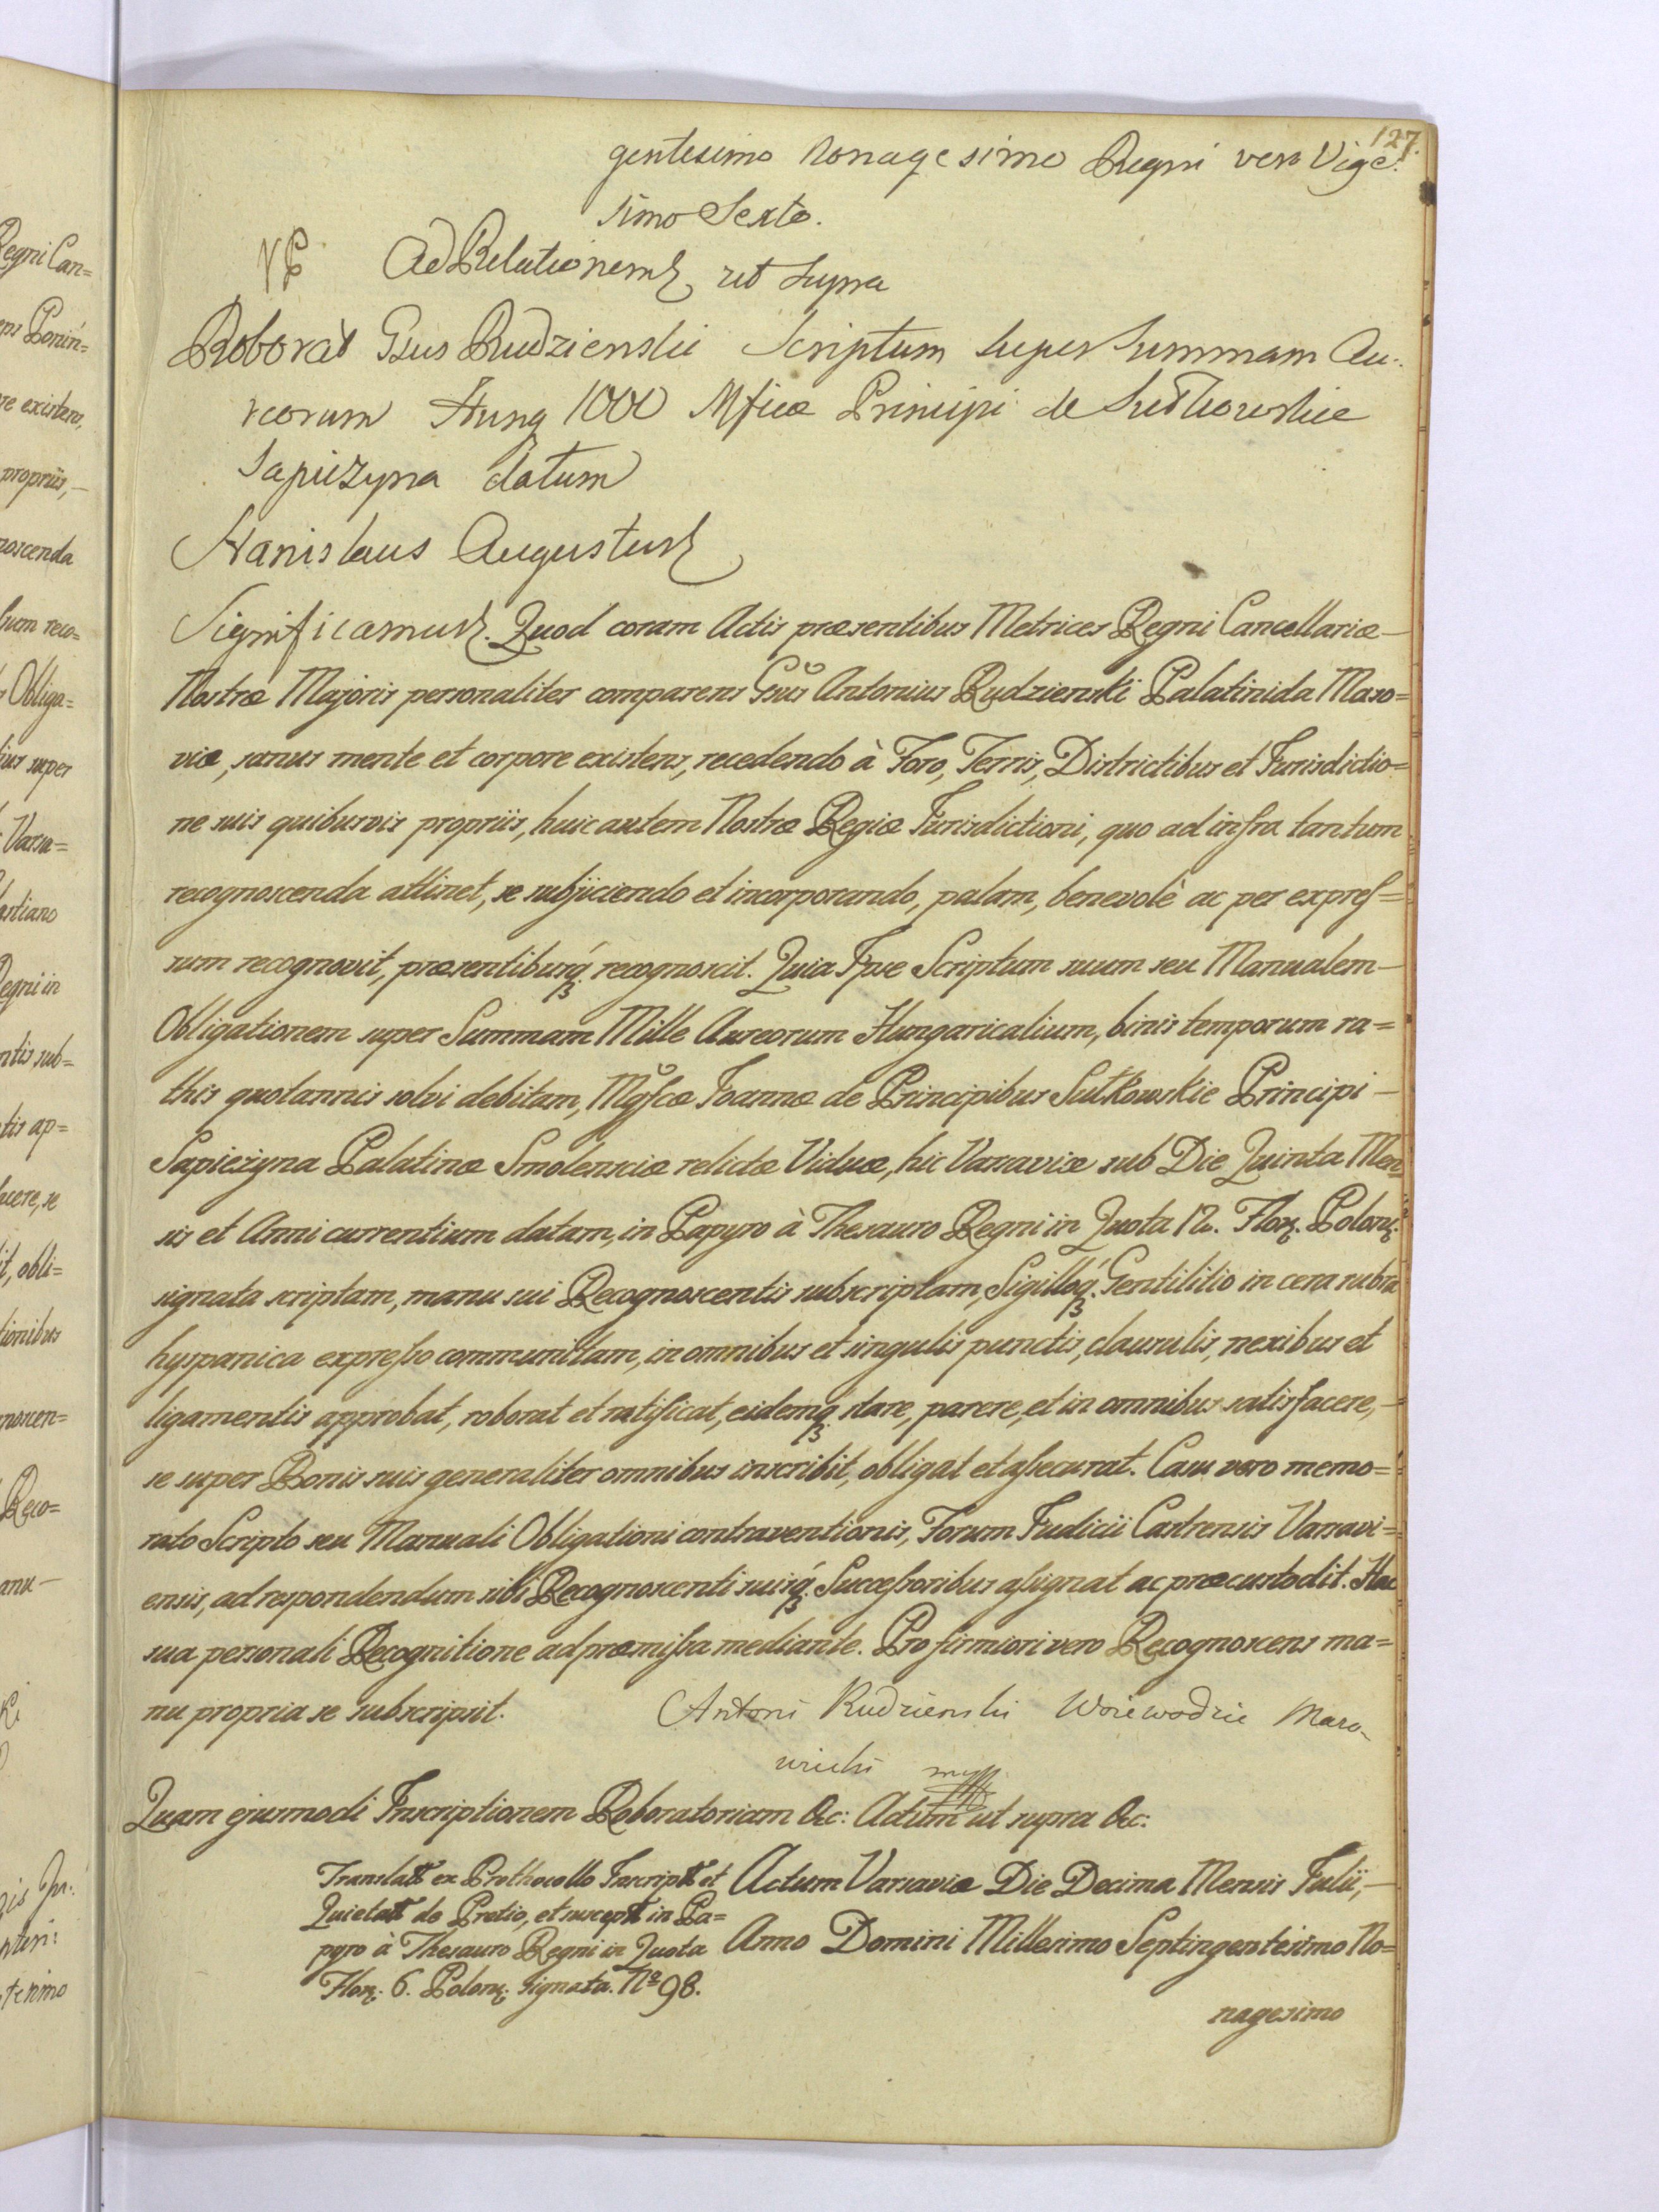 127.
gentesimo Nonagesimo Regni vero Vige:
simo Sexto.
Ad Relationem ut supra
Roborat Gsus Rudzienski Scriptum super Summam Au:
reorum Hung 1000 Mficæ Principi de Sułkowskie
Sapieżyna datum
Stanislaus Augustus
Significamus. Quod coram Actis præsentibus Metrices Regni Cancellariæ
Nostræ Majoris personaliter comparens Gsus Antonius Rudzienski Palatinida Maso=
viæ, sanus mente et corpore existens, recedendo à Foro, Terris, Districtibus et Jurisdictio=
ne suis quibusvis propriis, huic autem Nostræ Regiæ Jurisdictioni, quo ad infra tantum
recognoscenda attinet, se subjiciendo et incorporando, palam, benevolè ac per expres=
sum recognovit, præsentibusq; recognoscit. Quia Ipse Scriptum suum seu Manualem
Obligationem super Summam Mille Aureorum Hungaricalium, binis temporum ra=
this quotannis solvi debitam, Mgfcæ Joannæ de Principibus Sułkowskie Principi
Sapieżyna Palatinæ Smolensciæ relictæ Viduæ, hic Varsaviæ sub Die Quinta Men
sis et Anni currentium datam, in Papyro à Thesauro Regni in Quota 12. Flor. Polon.
signata scriptam, manu sui Recognoscentis subscriptam, Sigilloq; Gentilitio in cera rubra
hyspanica expresso communitam, in omnibus et singulis punctis, clausulis, nexibus et
ligamentis approbat, roborat et ratificat, eidemq; stare, parere, et in omnibus satisfacere,
se super Bonis suis generaliter omnibus inscribit, obligat et assecurat. Casu vero memo=
rato Scripto seu Manuali Obligationi contraventionis, Forum Judicii Castrensis Varsavi=
ensis, ad respondendum sibi Recognoscenti suisq; Successoribus assignat ac præcustodit. Hac
sua personali Recognitione ad præmissa mediante. Pro firmiori vero Recognoscens ma=
nu propria se subscripsit. Antoni Rudzienski Woiewodzic Mazo-
wiecki mpp
Quam ejusmodi Inscriptionem Roboratoriam &c: Actum ut supra &c:
Translatt ex Prothocollo Inscriptt et
Quietatt de Pretio, et susceptt in Pa=
pyro à Thesauro Regni in Quota
Flor. 6. Polon. signata. No 98.
Actum Varsaviæ Die Decima Mensis Julii,
Anno Domini Millesimo Septingentesimo No=
nagesimo